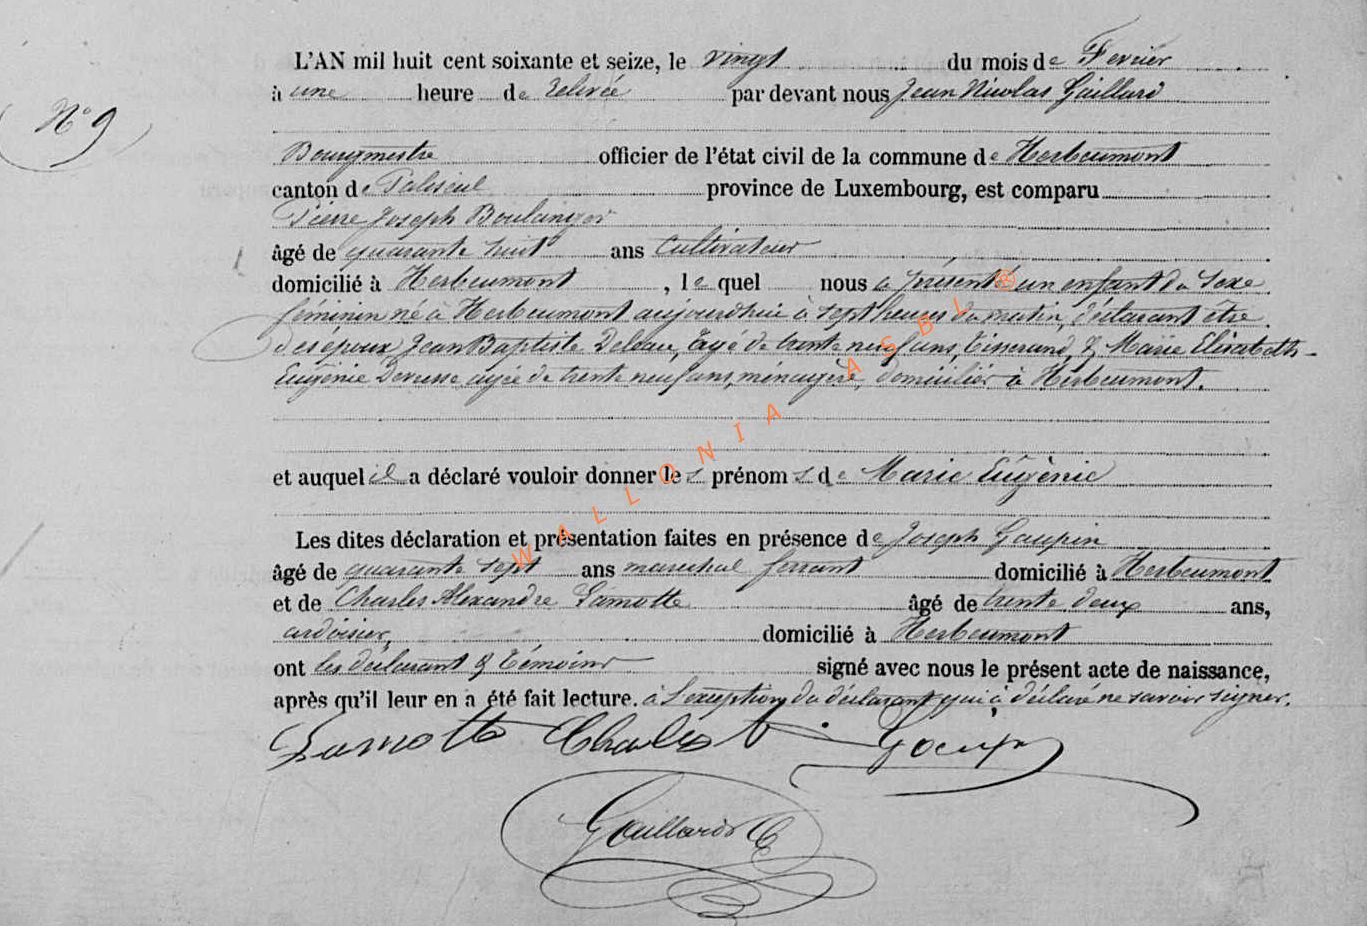 L'AN mil huit cent soixante et seize, le vingt du mois de Fevrier
N° 9
à une heure de relevée par devant nous Jean Nicolas Gaillard
Bourgmestre officier de l'état civil de la commune de Herbeumont
canton de Paliseul province de Luxembourg, est comparu
Pierre Joseph Boulanger
âgé de quarante huit ans Cultivateur
domicilié à Herbeumont, le quel nous a présenté un enfant du Sexe
féminin né à Herbeumont aujourdhui à sept heures du matin, déclarant être
des époux Jean Baptiste âgé de trente neuf ans, tisserand, & Marie Elisabeth
Eugénie agée de trente neuf ans, ménagère, domiciliés à Herbeumont.
et auquel il a déclaré vouloir donner les prénoms de Marie Eugènie
Les dites déclaration et présentation faites en présence de Joseph Goupin
âgé de quarante sept ans marechal ferrant domicilié à Herbeumont
et de Charles Alexandre Lamotte âgé de trente deux ans,
ardoisier, domicilié à Herbeumont
ont les déclarant & témoins signé avec nous le présent acte de naissance,
après qu'il leur en a été fait lecture. à l'exception du déclarant qui à déclaré ne savoir signer.
Lamotte Charles
Gaillard
WALLONIA ASBL ®